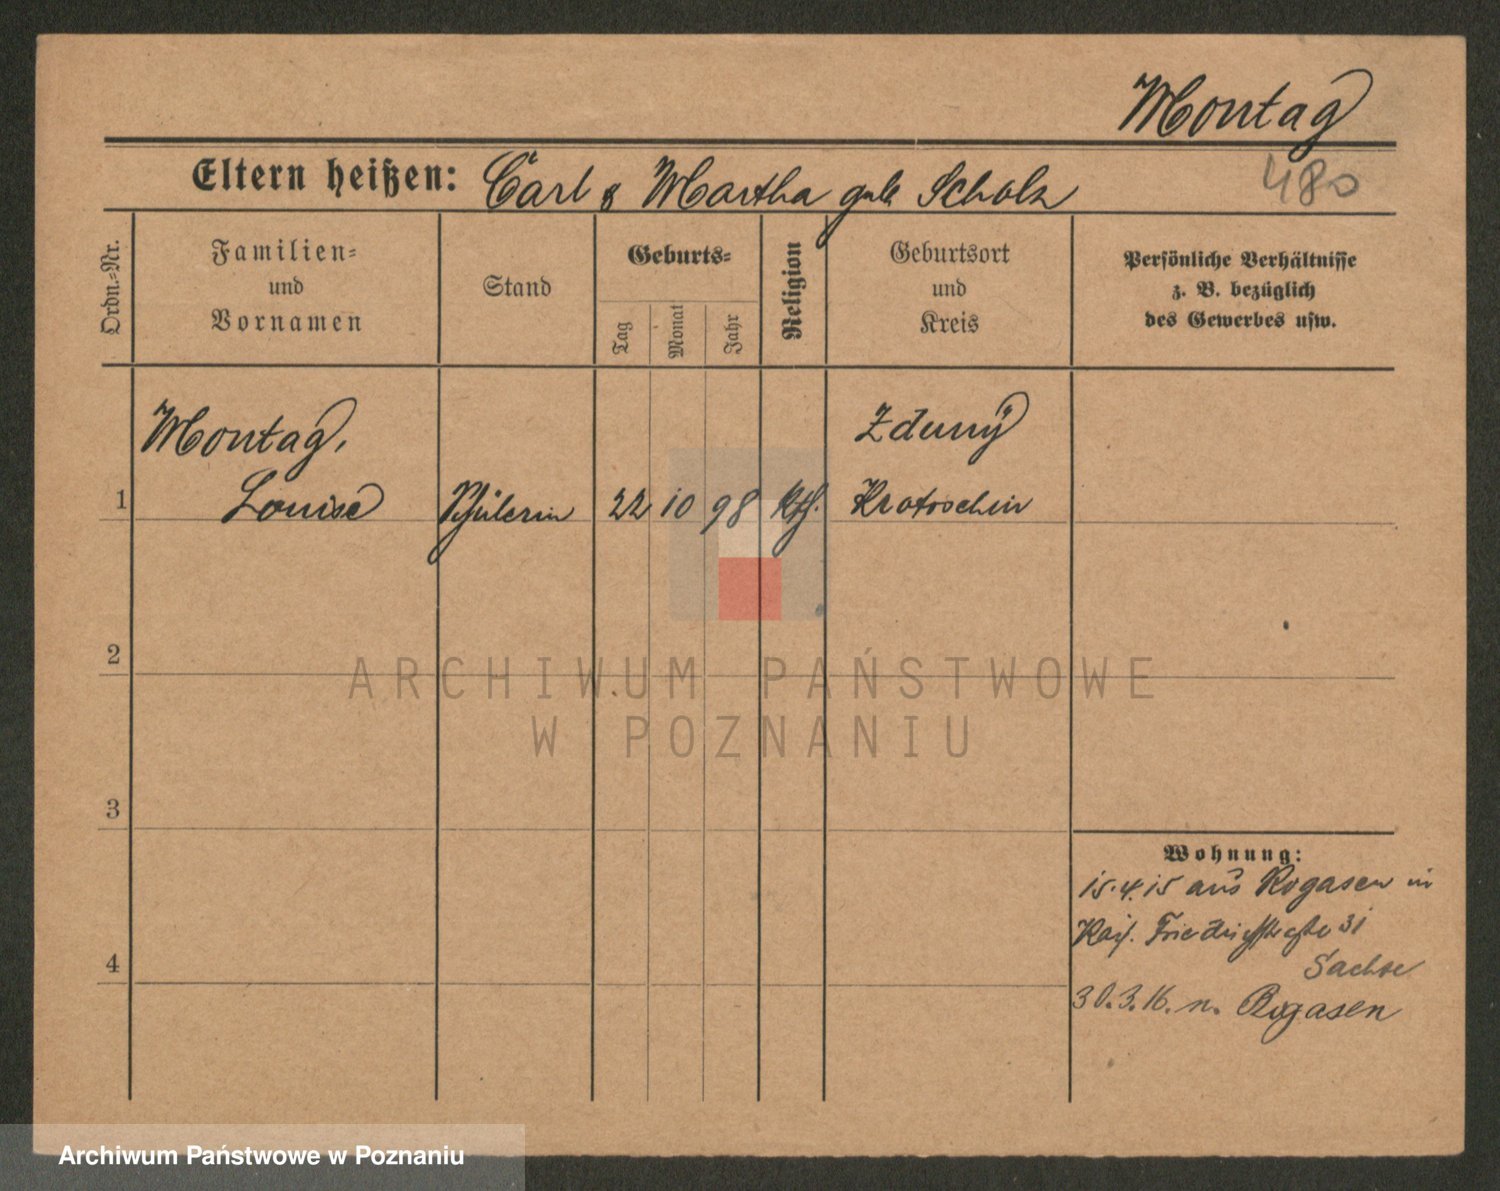 Montag
480
Eltern heißen: Carl & Martha geb. Scholz
Ordn.-Nr.
Familien-
und
Vornamen
Stand
Geburts-
Tag
Monat
Jahr
Religion
Geburtsort
und
Kreis
Persönliche Verhältnisse
z. B. bezüglich
des Gewerbes usw.
Montag,
Zduny
1 Louise Schülerin 22 10 98 Kth. Krotoschin
2
3
4
Wohnung:
15.4.15 aus Rogasen in
Friedrichstr 31
Sachse
30.3.16. n. Rogasen
ARCHIWUM PAŃSTWOWE
W POZNANIU
Archiwum Państwowe w Poznaniu